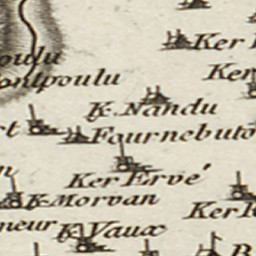 Ker
oulu
ontpoulu
Ker
K. Nandu
rt
Fournebuto
Ker Ervé
K. Morvan
Ker
neur
K. Vaux